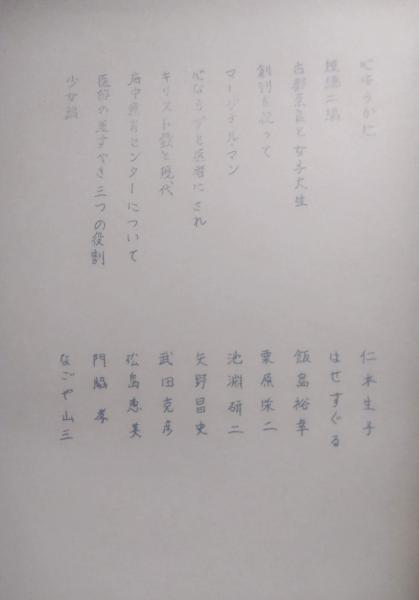 心安らかに 仁木生子
短編二編 はせすぐる
古都奈良と女子大生 飯島裕幸
創刊を祝って 栗原栄二
マージナル・マン 池淵研二
心ならずも医者にされ 矢野昌史
キリスト教と現代 武田克彦
府中療育センターについて 松島恵美
医師の果すべき三つの役割 門脇孝
少女論 なごや山三